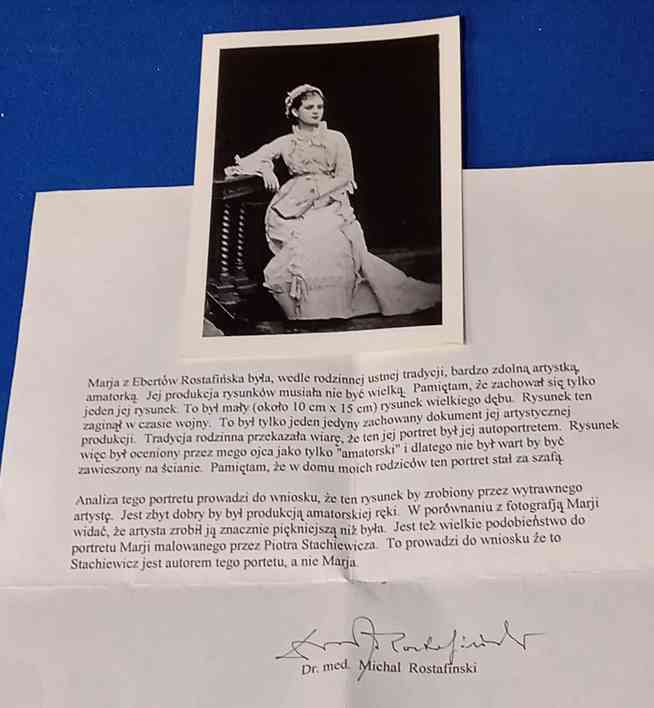 Marja z Ebertów Rostafińska była, wedle rodzinnej ustnej tradycji, bardzo zdolną artystką
amatorką. Jej produkcja rysunków musiała nie być wielką. Pamiętam, że zachował się tylko
jeden jej rysunek. To był mały (około 10 cm x 15 cm) rysunek wielkiego dębu. Rysunek ten
zaginął w czasie wojny. To był tylko jeden jedyny zachowany dokument jej artystycznej
produkcji. Tradycja rodzinna przekazała wiarę, że ten jej portret był jej autoportretem. Rysunek
więc był oceniony przez mego ojca jako tylko "amatorski" i dlatego nie był wart by być
zawieszony na ścianie. Pamiętam, że w domu moich rodziców ten portret stał za szafą.
Analiza tego portretu prowadzi do wniosku, że ten rysunek by zrobiony przez wytrawnego
artystę. Jest zbyt dobry by był produkcją amatorskiej ręki. W porównaniu z fotografją Marji
widać, że artysta zrobił ją znacznie piękniejszą niż była. Jest też wielkie podobieństwo do
portretu Marji malowanego przez Piotra Stachiewicza. To prowadzi do wniosku że to
Stachiewicz jest autorem tego portetu, a nie Marja.
Dr. med. Michal Rostafinski